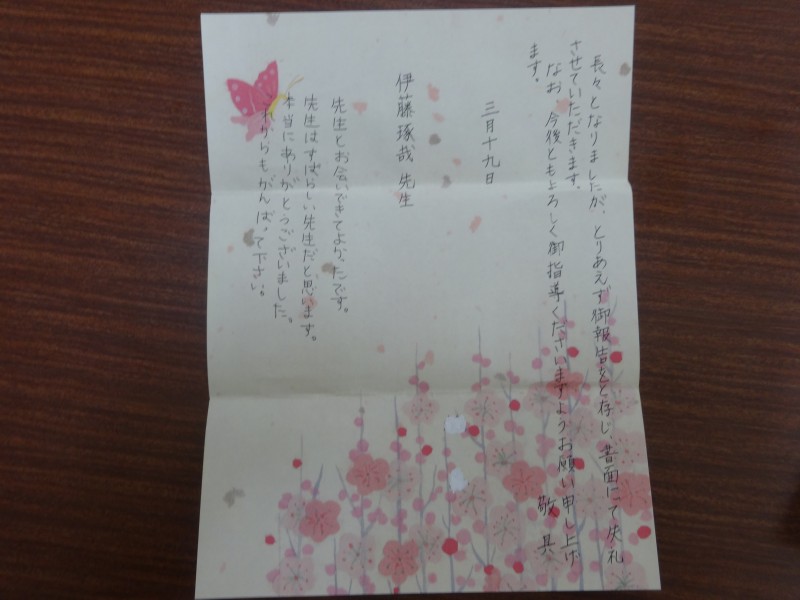 長々となりましたが、とりあえず御報告をと存じ、書面にて失礼
させていただきます。
なお、今後ともよろしく御指導くださいますようお願い申し上げ
ます。
敬具
三月十九日
伊藤琢哉先生
先生とお会いできてよかったです。
先生はすばらしい先生だと思います。
本当にありがとうございました。
これからもがんばって下さい。